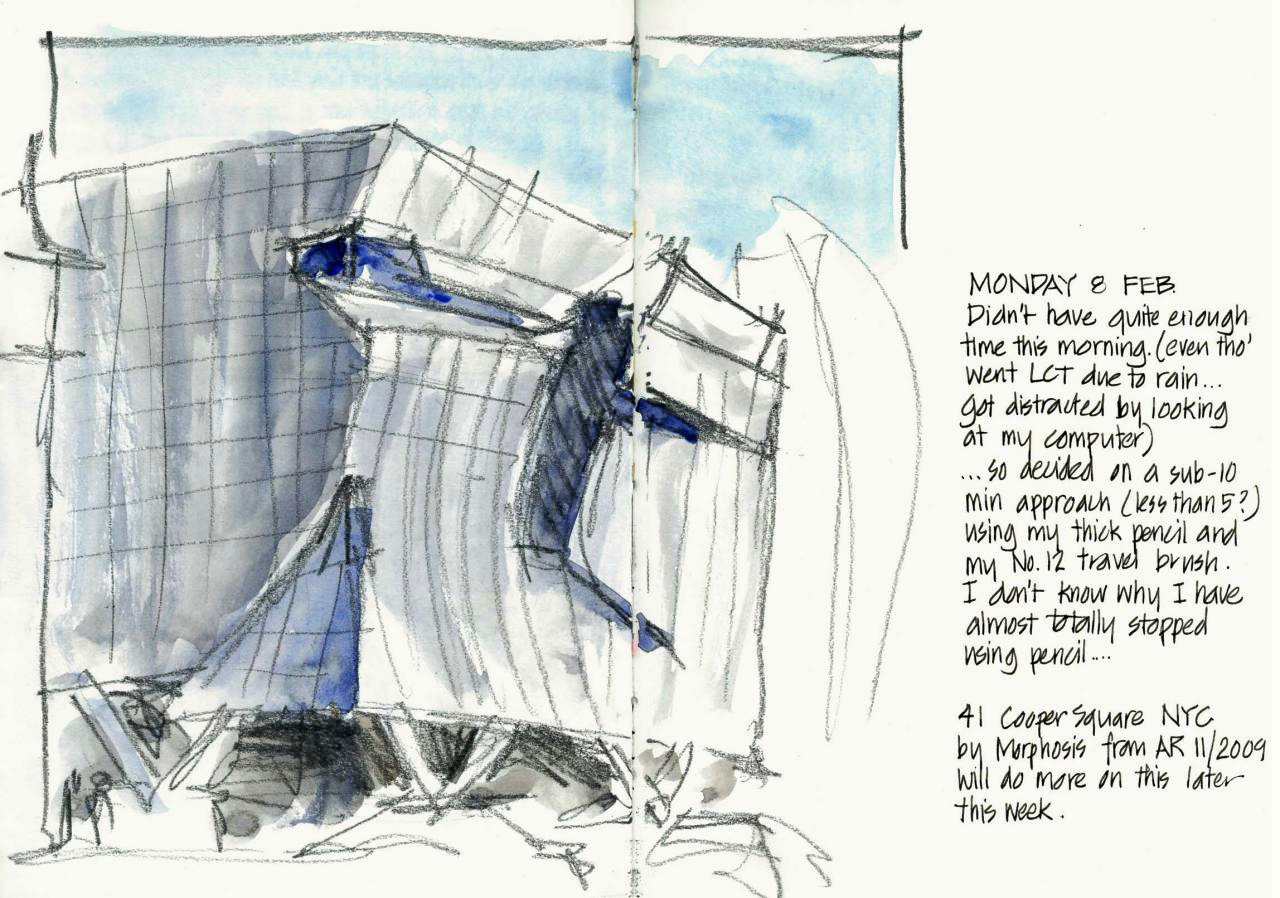 MONDAY 8 FEB.
Didn't have quite enough
time this morning. (even tho'
went LCT due to rain...
got distracted by looking
at my computer)
...so decided on a sub-10
min approach (less than 5?)
using my thick pencil and
my No.12 travel brush.
I don't know why I have
almost totally stopped
using pencil....
41 Cooper Square NYC
by Morphosis from AR 11/2009
will do more on this later
this week.